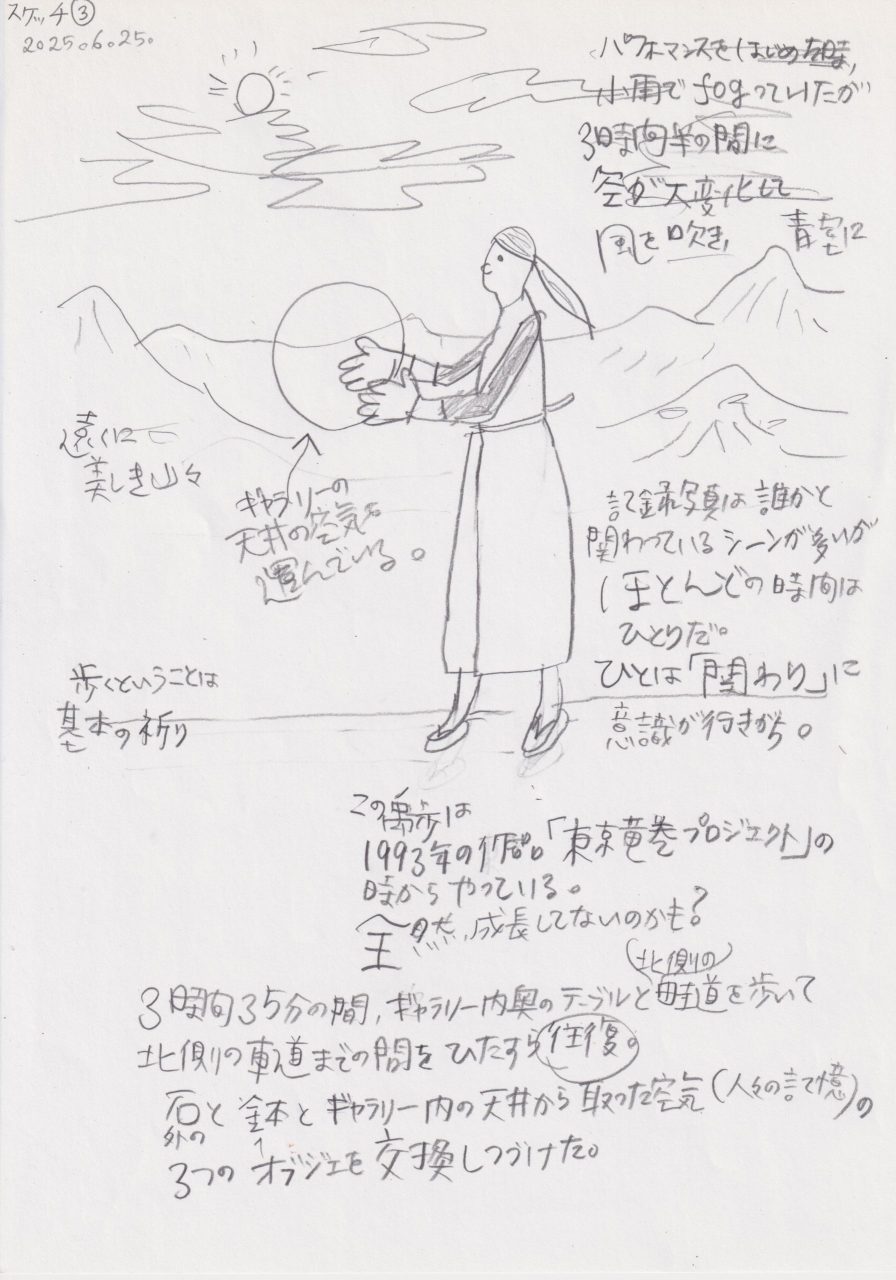 スケッチ③
2025.6.25.
パフォマンスをはじめた時は、
小雨でfogっていたが
3時間半の間に
空が大変化して
風も吹き、青空に
遠くに
美しき山々
ギャラリーの
天井の空気を
運んでいる。
記録写真は誰かと
関わっているシーンが多いが
ほとんどの時間は
ひとりだ。
ひとは「関わり」に
意識が行きがち。
歩くということは
基本の祈り
この禹歩は
1993年の作品「東京竜巻プロジェクト」の
時からやっている。
全然、成長してないのかも?
(北側の)
3時間35分の間、ギャラリー内奥のテーブルと畦道を歩いて
北側の車道までの間をひたすら往復。
石と鉢とギャラリー内の天井から取った空気(人々の記憶)の
外の
3つのオブジェを交換しつづけた。